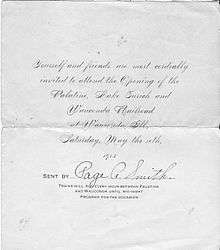 Yourself and friends are most cordially
invited to attend the Opening of the
Palatine, Lake Zurich and
Wauconda Railroad
At Wauconda, Ill.,
Saturday, May the 18th,
1912
SENT BY Page A. Smith
TRAINS WILL RUN EVERY HOUR BETWEEN PALATINE
AND WAUCONDA UNTIL MIDNIGHT
PROGRAM FOR THE OCCASION